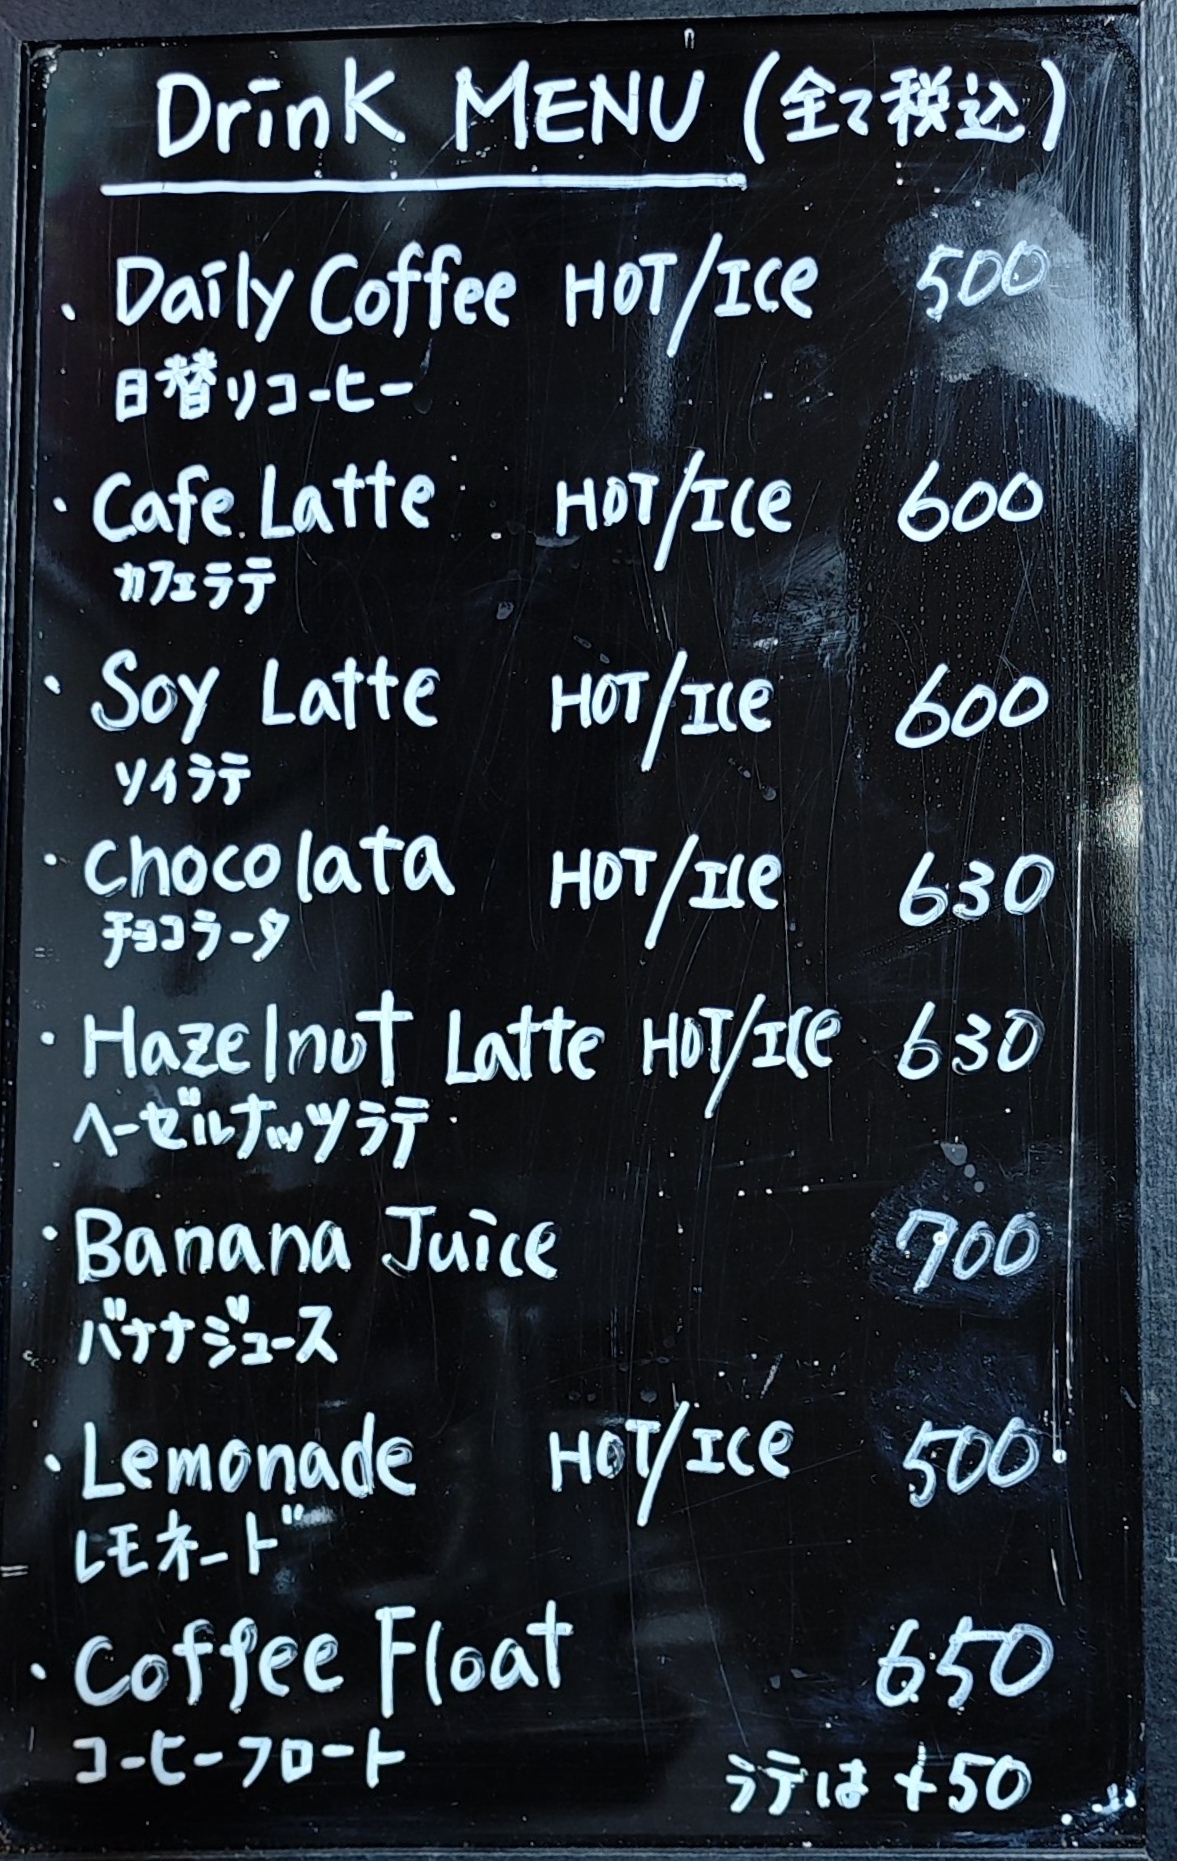 Drink MENU (全て税込)
・Daily Coffee HOT/Ice 500
日替りコーヒー
・Cafe Latte HOT/Ice 600
カフェラテ
・Soy Latte HOT/Ice 600
ソイラテ
・Chocolata HOT/Ice 630
チョコラータ
・Hazelnut Latte HOT/Ice 630
ヘーゼルナッツラテ
・Banana Juice 700
バナナジュース
・Lemonade HOT/Ice 500
レモネード
・Coffee Float 650
コーヒーフロート ラテは+50